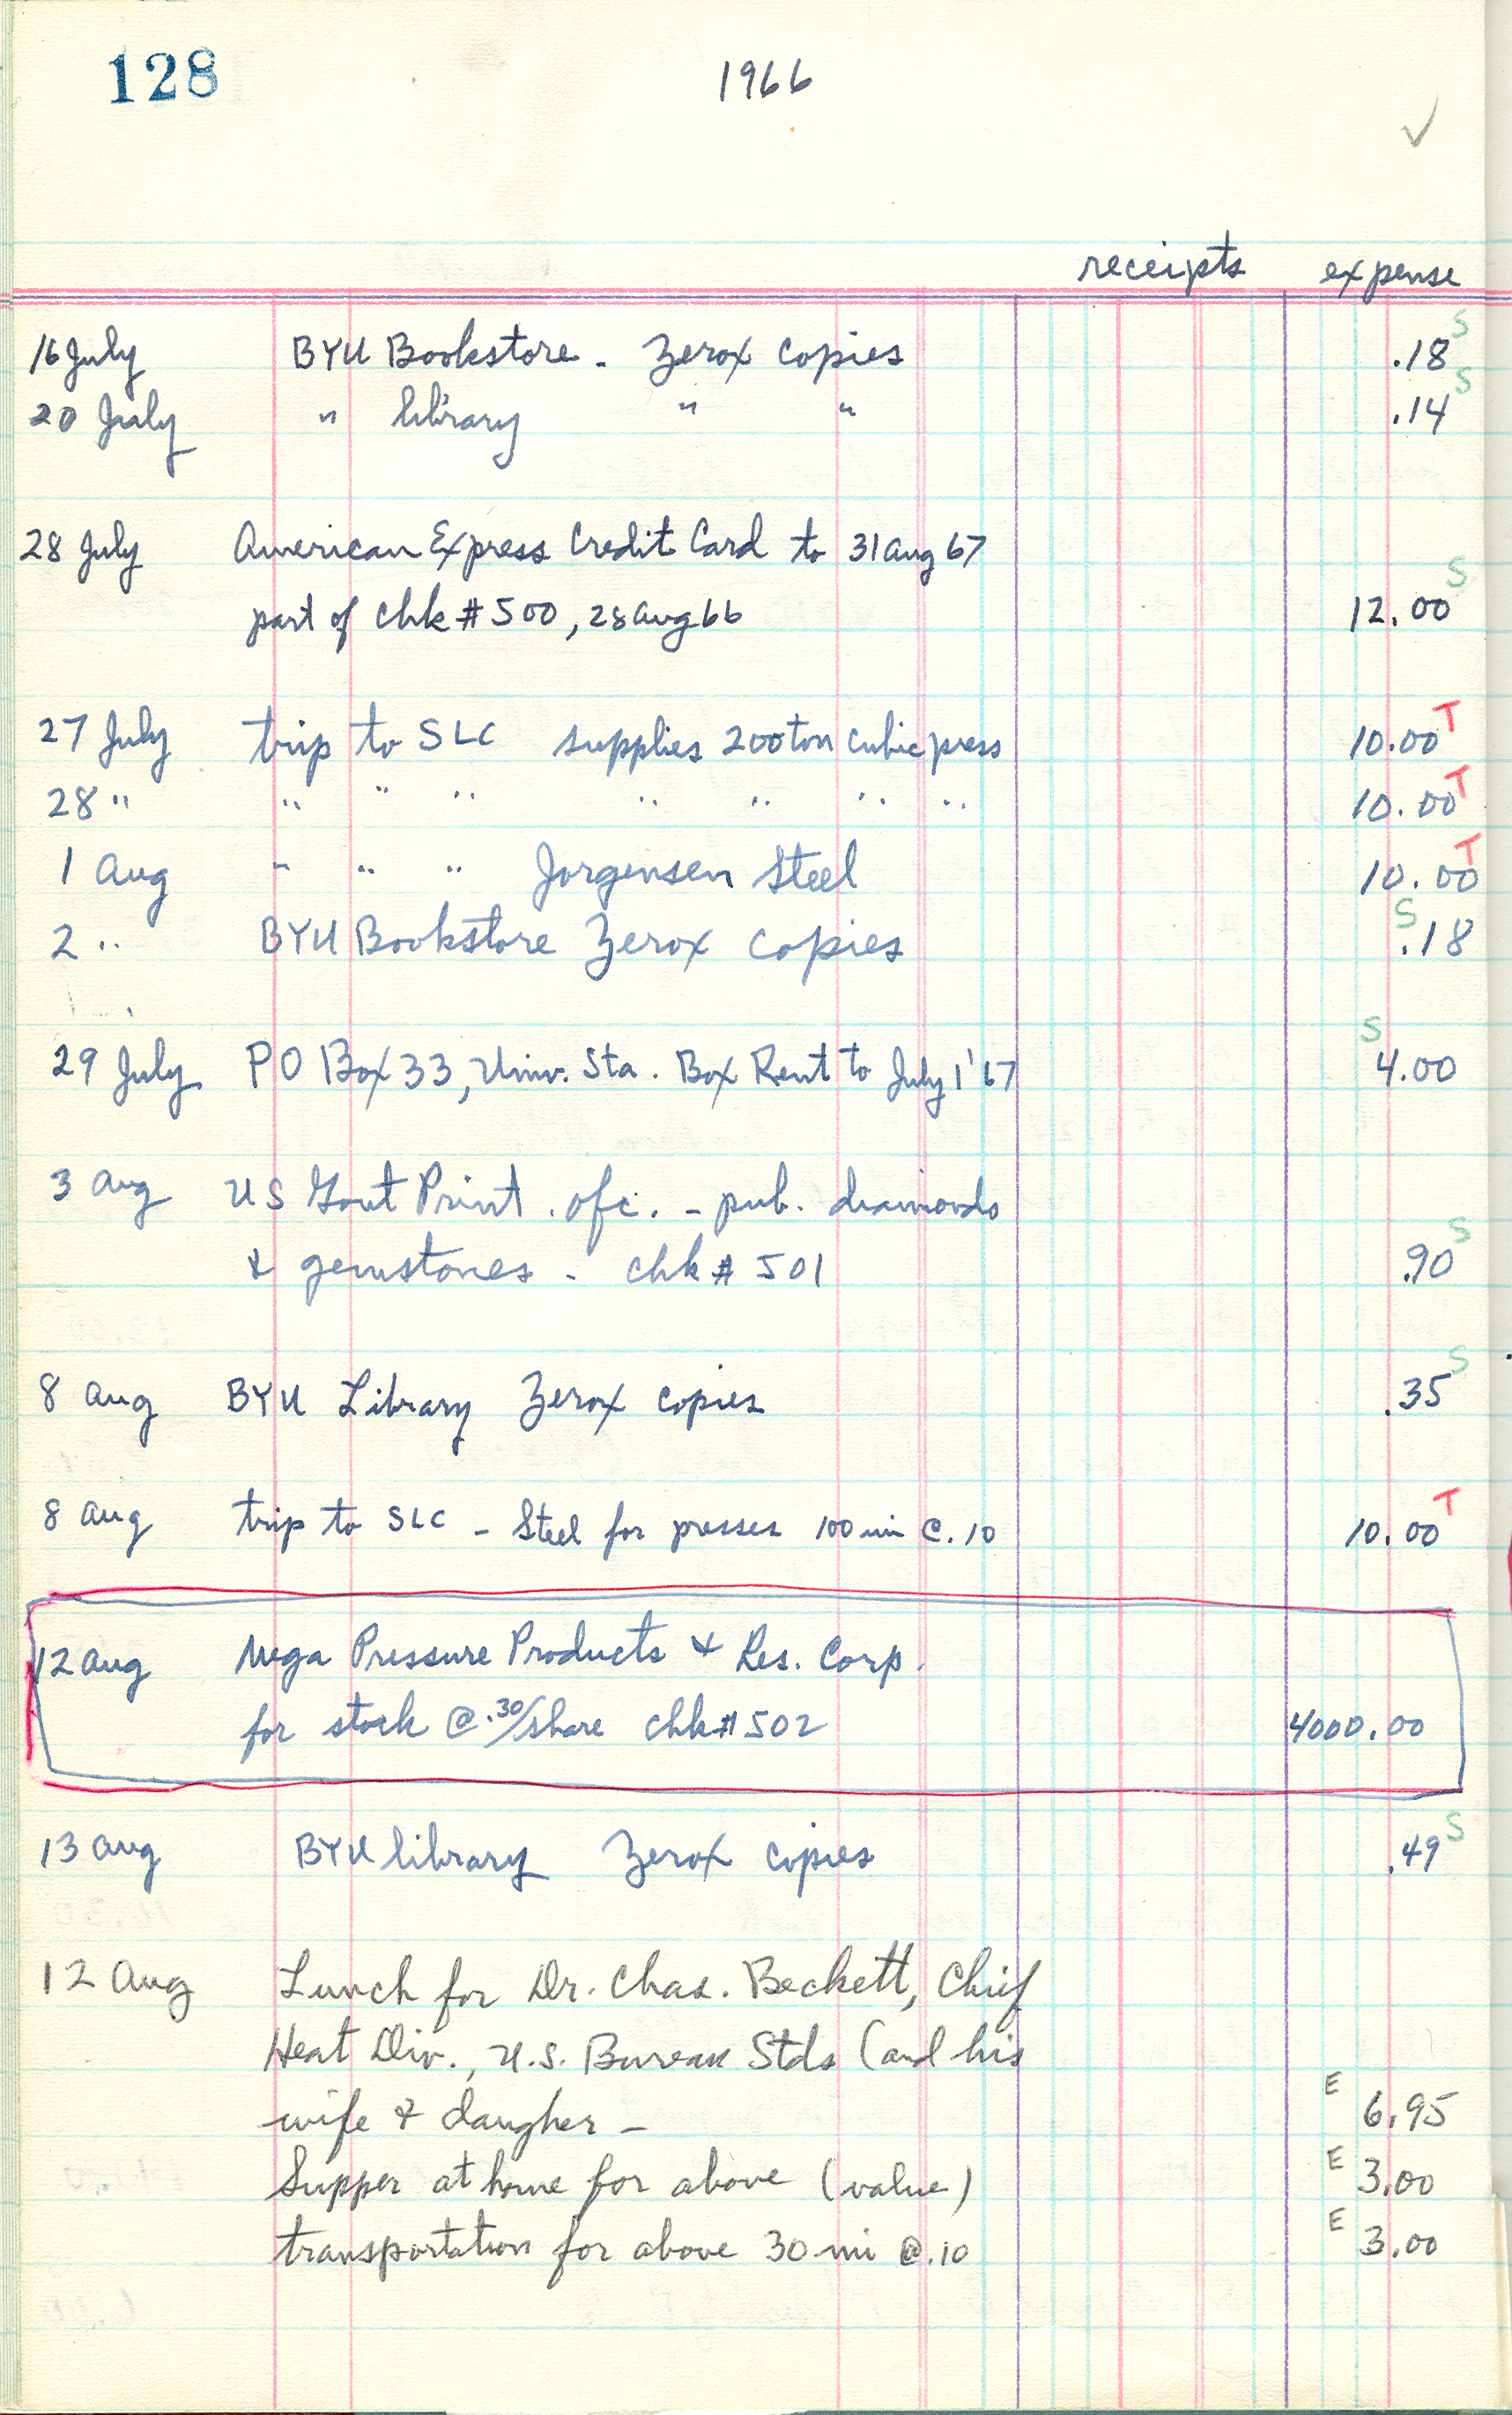 128
1966
✓
receipts expense
16 July BYU Bookstore - Zerox copies .18 S
20 July " library " " .14 S
28 July American Express Credit Card to 31 Aug 67
part of chk # 500, 28 Aug 66 12.00 S
27 July trip to SLC supplies 200 ton cubic press 10.00 T
28 " " " " " " " " 10.00 T
1 Aug " " " Jorgensen Steel 10.00 T
2 " BYU Bookstore Zerox copies .18 S
29 July PO Box 33, Univ. Sta. Box Rent to July 1 '67 4.00 S
3 Aug US Govt Print. ofc. - pub. diamonds
& gemstones - chk # 501 .90 S
8 Aug BYU Library Zerox copies .35 S
8 Aug trip to SLC - Steel for presses 100 mi @ .10 10.00 T
12 Aug Mega Pressure Products & Res. Corp.
for stock @ .30/share chk # 502 4000.00
13 Aug BYU library Zerox copies .49 S
12 Aug Lunch for Dr. Chas. Beckett, Chief
Heat Div., U.S. Bureau Stds (and his
wife & daugher - E 6.95
Supper at home for above (value) E 3.00
transportation for above 30 mi @ .10 E 3.00